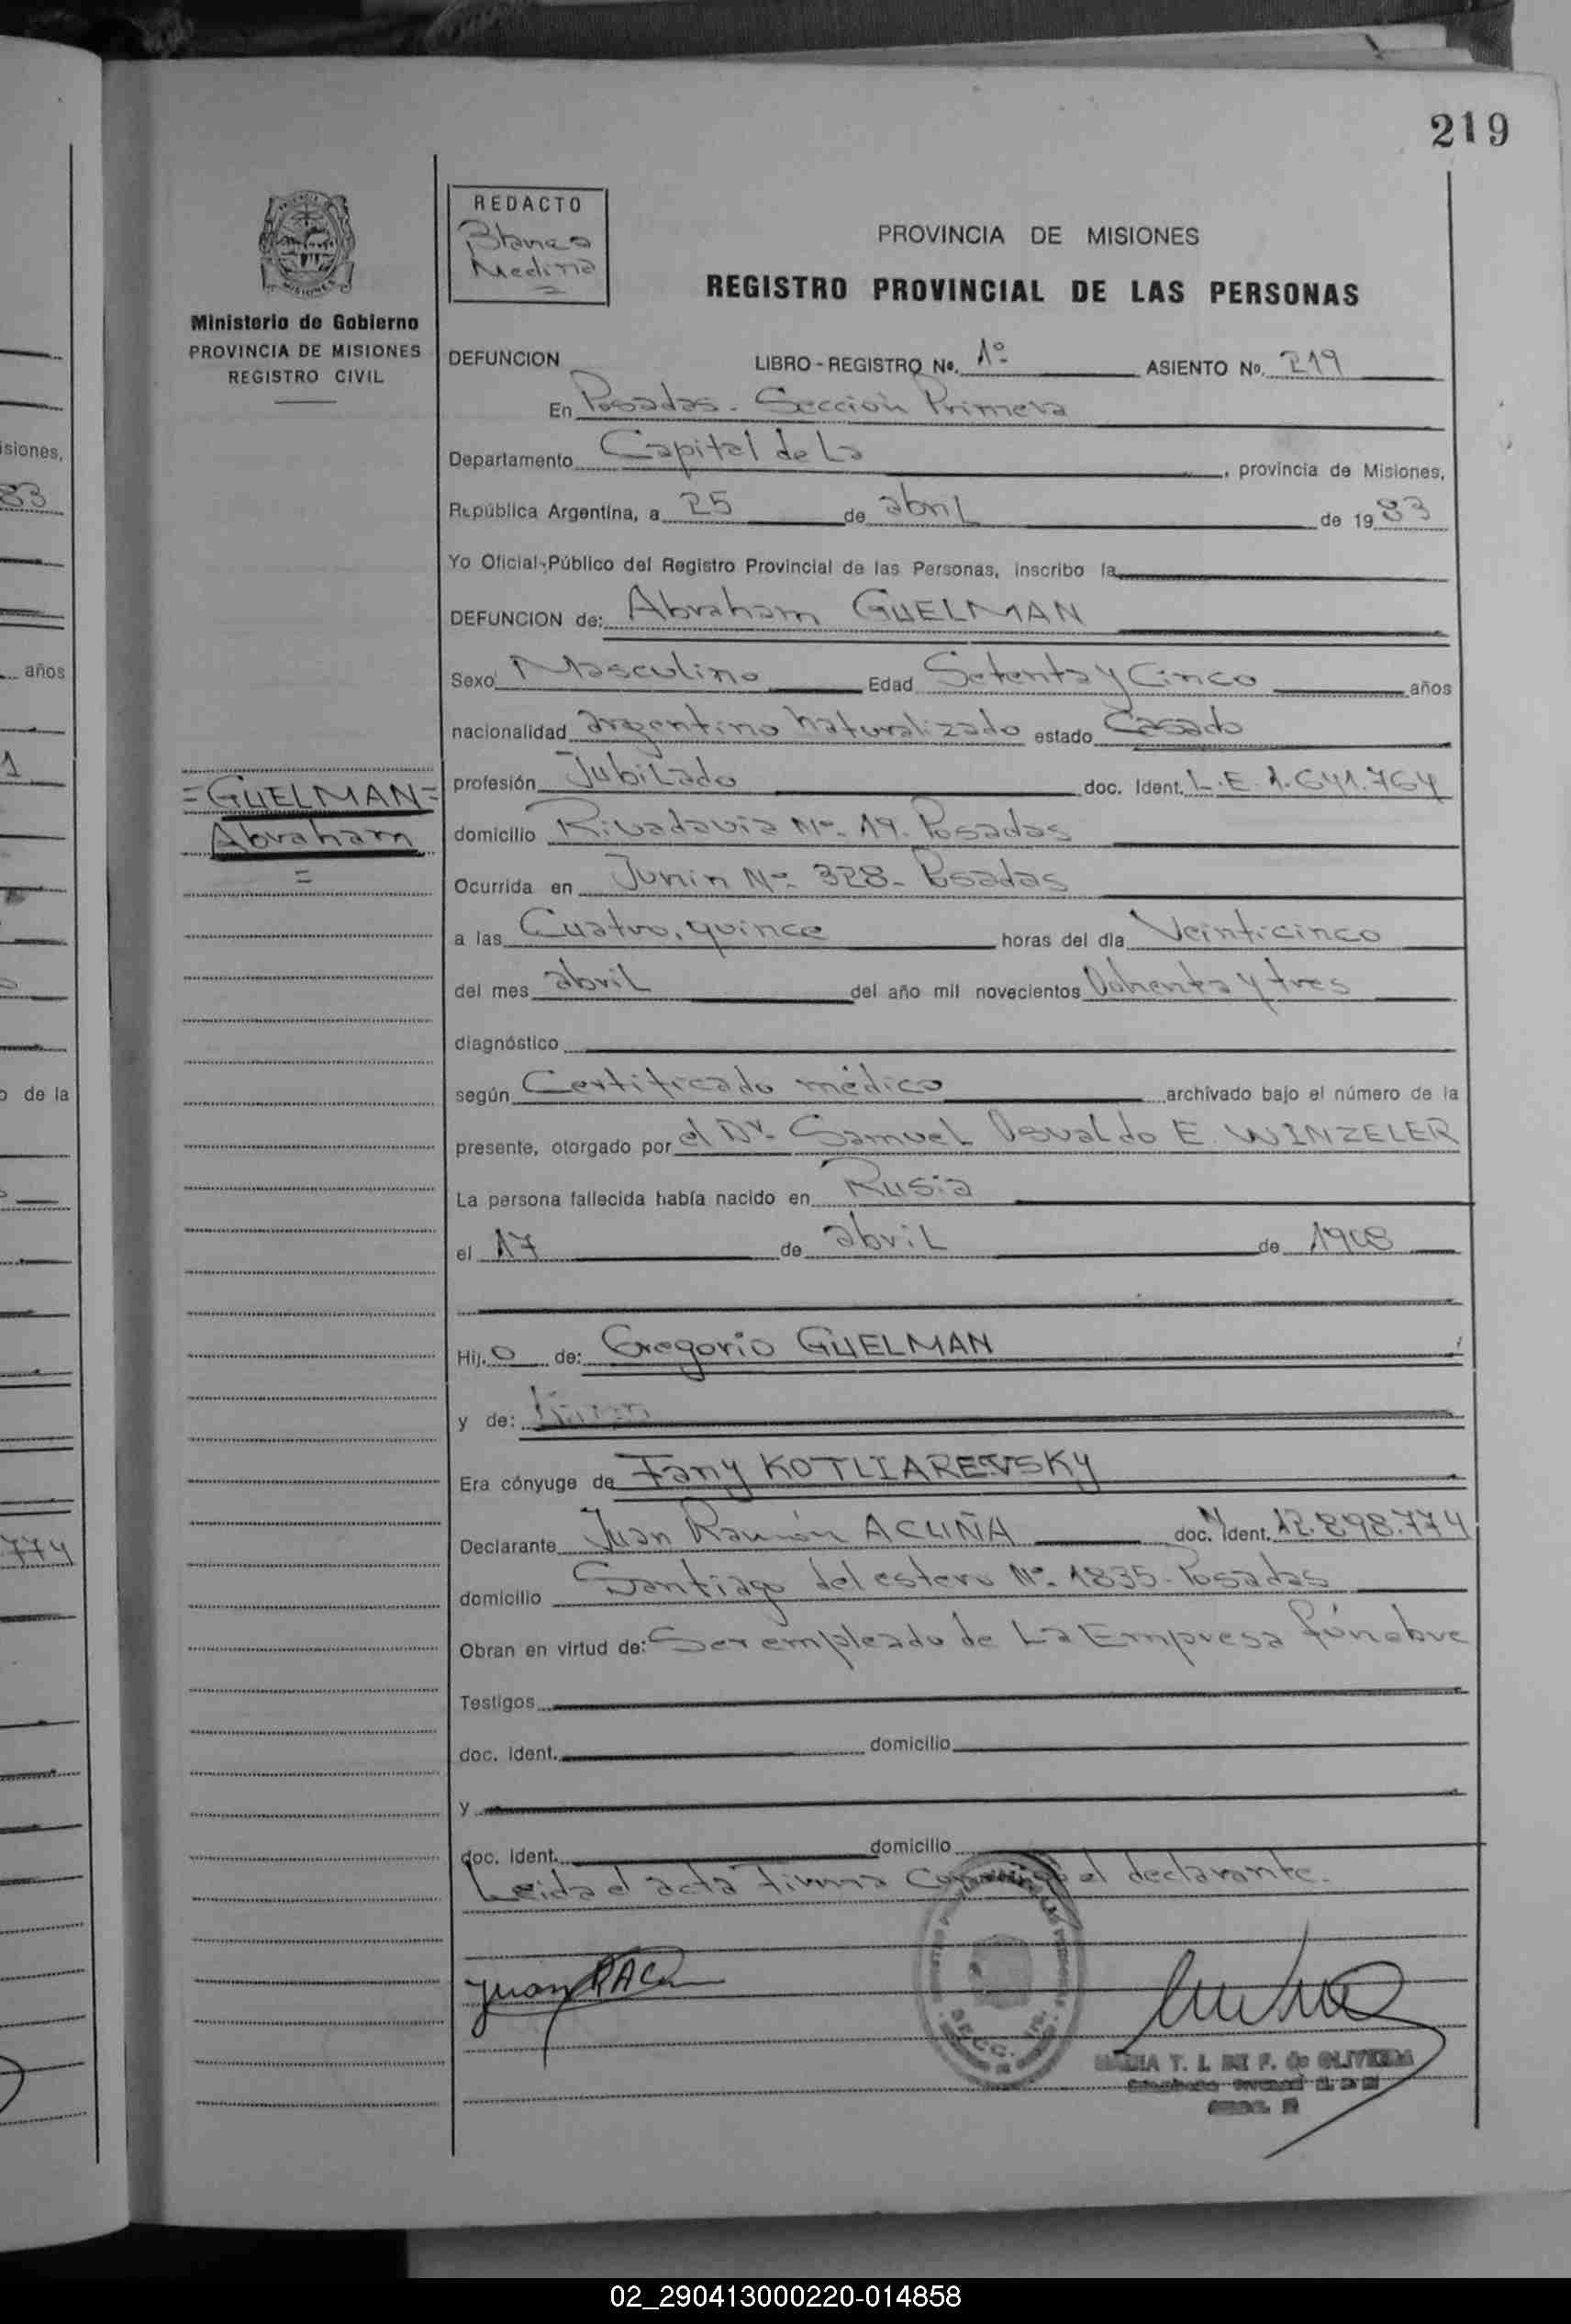 219
REDACTO
Blanca
Medina
PROVINCIA DE MISIONES
REGISTRO PROVINCIAL DE LAS PERSONAS
Ministerio de Gobierno
PROVINCIA DE MISIONES
REGISTRO CIVIL
DEFUNCION LIBRO - REGISTRO No. 1º ASIENTO No. 219
En Posadas - Sección Primera
Departamento Capital de La , provincia de Misiones,
República Argentina, a 25 de abril de 1983
Yo Oficial Público del Registro Provincial de las Personas, inscribo la
DEFUNCION de: Abraham GUELMAN
Sexo Masculino Edad Setenta y Cinco años
nacionalidad argentino naturalizado estado Casado
profesión Jubilado doc. Ident. L.E. 1.641.764
=GUELMAN=
Abraham
=
domicilio Rivadavia Nº 19. Posadas
Ocurrida en Junin Nº 328- Posadas
a las Cuatro, quince horas del día Veinticinco
del mes abril del año mil novecientos Ochenta y tres
diagnóstico
según Certificado médico archivado bajo el número de la
presente, otorgado por el Dr. Samuel Osvaldo E. WINZELER
La persona fallecida había nacido en Rusia
el 17 de abril de 1908
Hij o de: Gregorio GUELMAN
y de:
Era cónyuge de Fany KOTLIAREVSKY
Declarante Juan Ramón ACUÑA doc. Ident. 12.898.774
domicilio Santiago del estero Nº 1835- Posadas
Obran en virtud de: Ser empleado de La Empresa fúnebre
Testigos
doc. Ident. domicilio
y
doc. Ident. domicilio
Leida el acta firma conmigo el declarante.
siones,
83
años
1
o de la
774
02_290413000220-014858